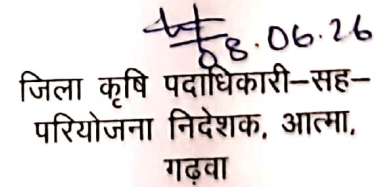 08.06.26
जिला कृषि पदाधिकारी–सह–
परियोजना निदेशक, आत्मा,
गढ़वा